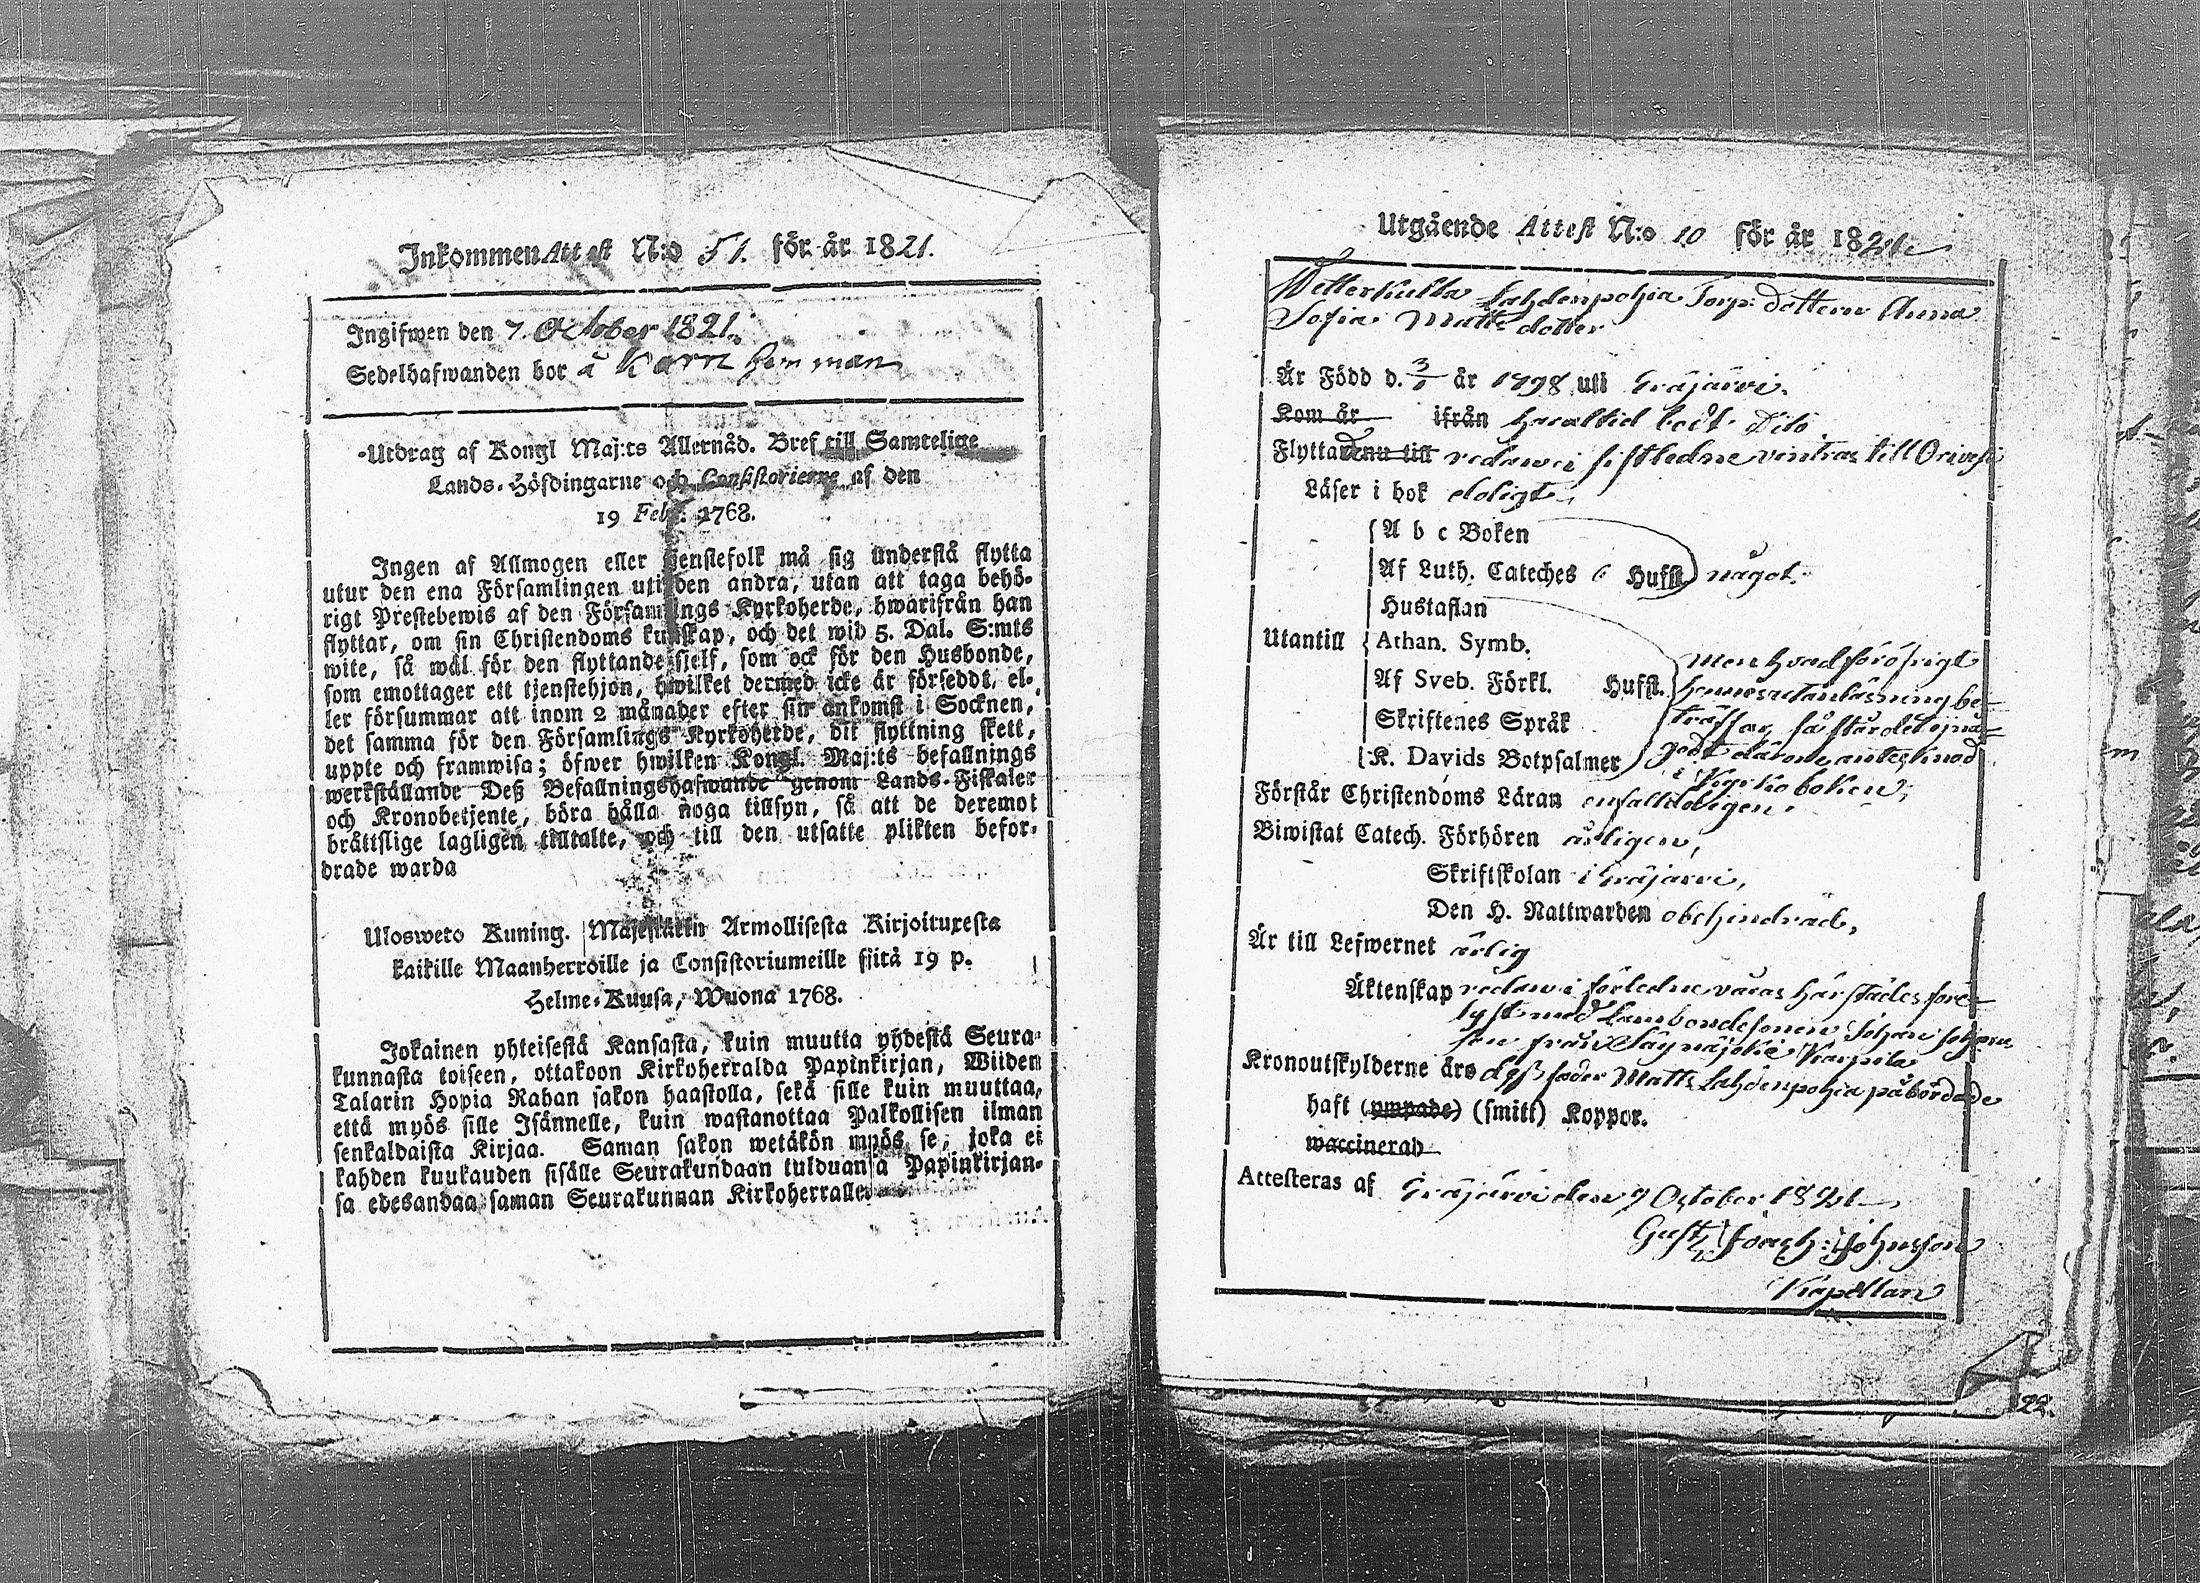 Inkommen Attest N:o 51. för år 1821.
Ingifwen den 7. October 1821.
Sedelhafwanden bor å Karn hemman
Utdrag af Kongl Maj:ts Allernåd. Bref till Samtelige
Lands-Höfdingarne och Consistorierne af den
19 Febr. 1768.
Ingen af Allmogen eller tjenstefolk må sig understå flytta
utur den ena Församlingen uti den andra, utan att taga behö-
rigt Prestebewis af den Församlings Kyrkoherde, hwarifrån han
flyttar, om sin Christendoms kunskap, och det wid 5. Dal. S:mts
wite, så wäl för den flyttande sjelf, som ock för den Husbonde,
som emottager ett tjenstehjon, hwilket dermed icke är försedt, el-
ler försummar att inom 2 månader efter sin ankomst i Socknen,
det samma för den Församlings Kyrkoherde, dit flyttning skett,
uppte och framwisa; öfwer hwilken Kongl. Maj:ts befallnings
werkställande Deß Befallningshafwande genom Lands-Fiskaler
och Kronobetjente, böra hålla noga tillsyn, så att de deremot
bråttslige lagligen tilltalte, och till den utsatte plikten befor-
drade warda
Ulosweto Kuning. Majestätin Armollisesta Kirjoituxesta
kaikille Maanherroille ja Consistoriumeille siitä 19 p.
Helme-Kuusa, Wuona 1768.
Jokainen yhteisestä Kansasta, kuin muutta yhdestä Seura-
kunnasta toiseen, ottakoon Kirkoherralda Papinkirjan, Wiiden
Talarin Hopia Rahan sakon haastolla, sekä sille kuin muuttaa,
että myös sille Isännelle, kuin wastanottaa Palkollisen ilman
senkaldaista Kirjaa. Saman sakon wetäkön myös se, joka ei
kahden kuukauden sisälle Seurakundaan tulduansa Papinkirjan-
sa edesandaa saman Seurakunnan Kirkoherralle.
Utgående Attest N:o 10 för år 1821
Wetterkulla Lahdenpohja Torp: dottern Anna
Sofia Matts dotter
Är Född d. 3/1 år 1798 uti Gräjärvi.
Kom år ifrån har altid bott Dito.
Flyttar nu till redan i sistledne vintras till Orivesi
Läser i bok doligt,
A b c Boken
Af Luth. Cateches 6 Hufst. något.
Hustaflan
Utantill Athan. Symb.
Af Sveb. Förkl. Hufst.
Skriftenes Språk
K. Davids Botpsalmer
men hvad för öfrigt
hennes utanläsning be-
träffar, så står det ej nå-
got därom anteknad
i Kyrkoboken,
Förstår Christendoms Läran enfalldeligen.
Biwistat Catech. Förhören årligen,
Skriftskolan i Gräjärvi,
Den H. Nattwarden obehindrad,
Är till Lefwernet ärlig
Äktenskap redan i förledne våras härstädes före-
lyst med Landbondesonen Johan Johans-
son från Säynäjoki Karpila
Kronoutskylderne äro deß fader Matts Lahdenpohja påbördade
haft (ympade) (smitt) Koppor.
waccinerad
Attesteras af Gräjärvi den 7 October 1821
Gust: Joach: Johnsson
Kapellan
22.